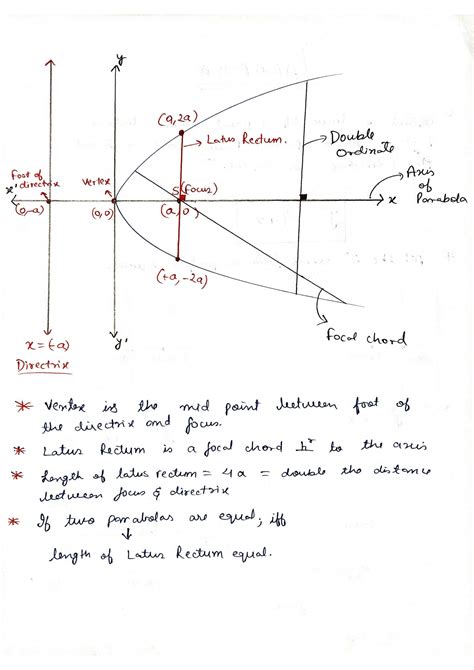 y
(a, 2a)
Latus Rectum.
Double
Ordinate
foot of
directrix
x'
vertex
S(focus)
Axis
of
Parabola
x
(0,-a)
(0,0)
(a,0)
(+a,-2a)
focal chord
x=(-a)
Directrix
y'
* Vertex is the mid point between foot of
the directrix and focus.
* Latus Rectum is a focal chord to the axis
* Length of latus rectum = 4a = double the distance
between focus & directrix
* If two parabolas are equal; iff
↓
length of Latus Rectum equal.